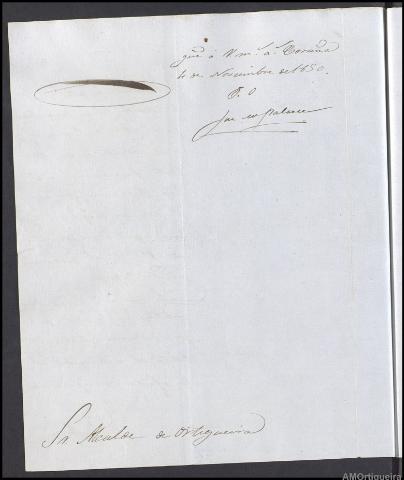 gũe á V. m. a. Coruña
4 de Noviembre de 1850.
P. O
Sr. Alcalde de Ortigueira
AMOrtigueira